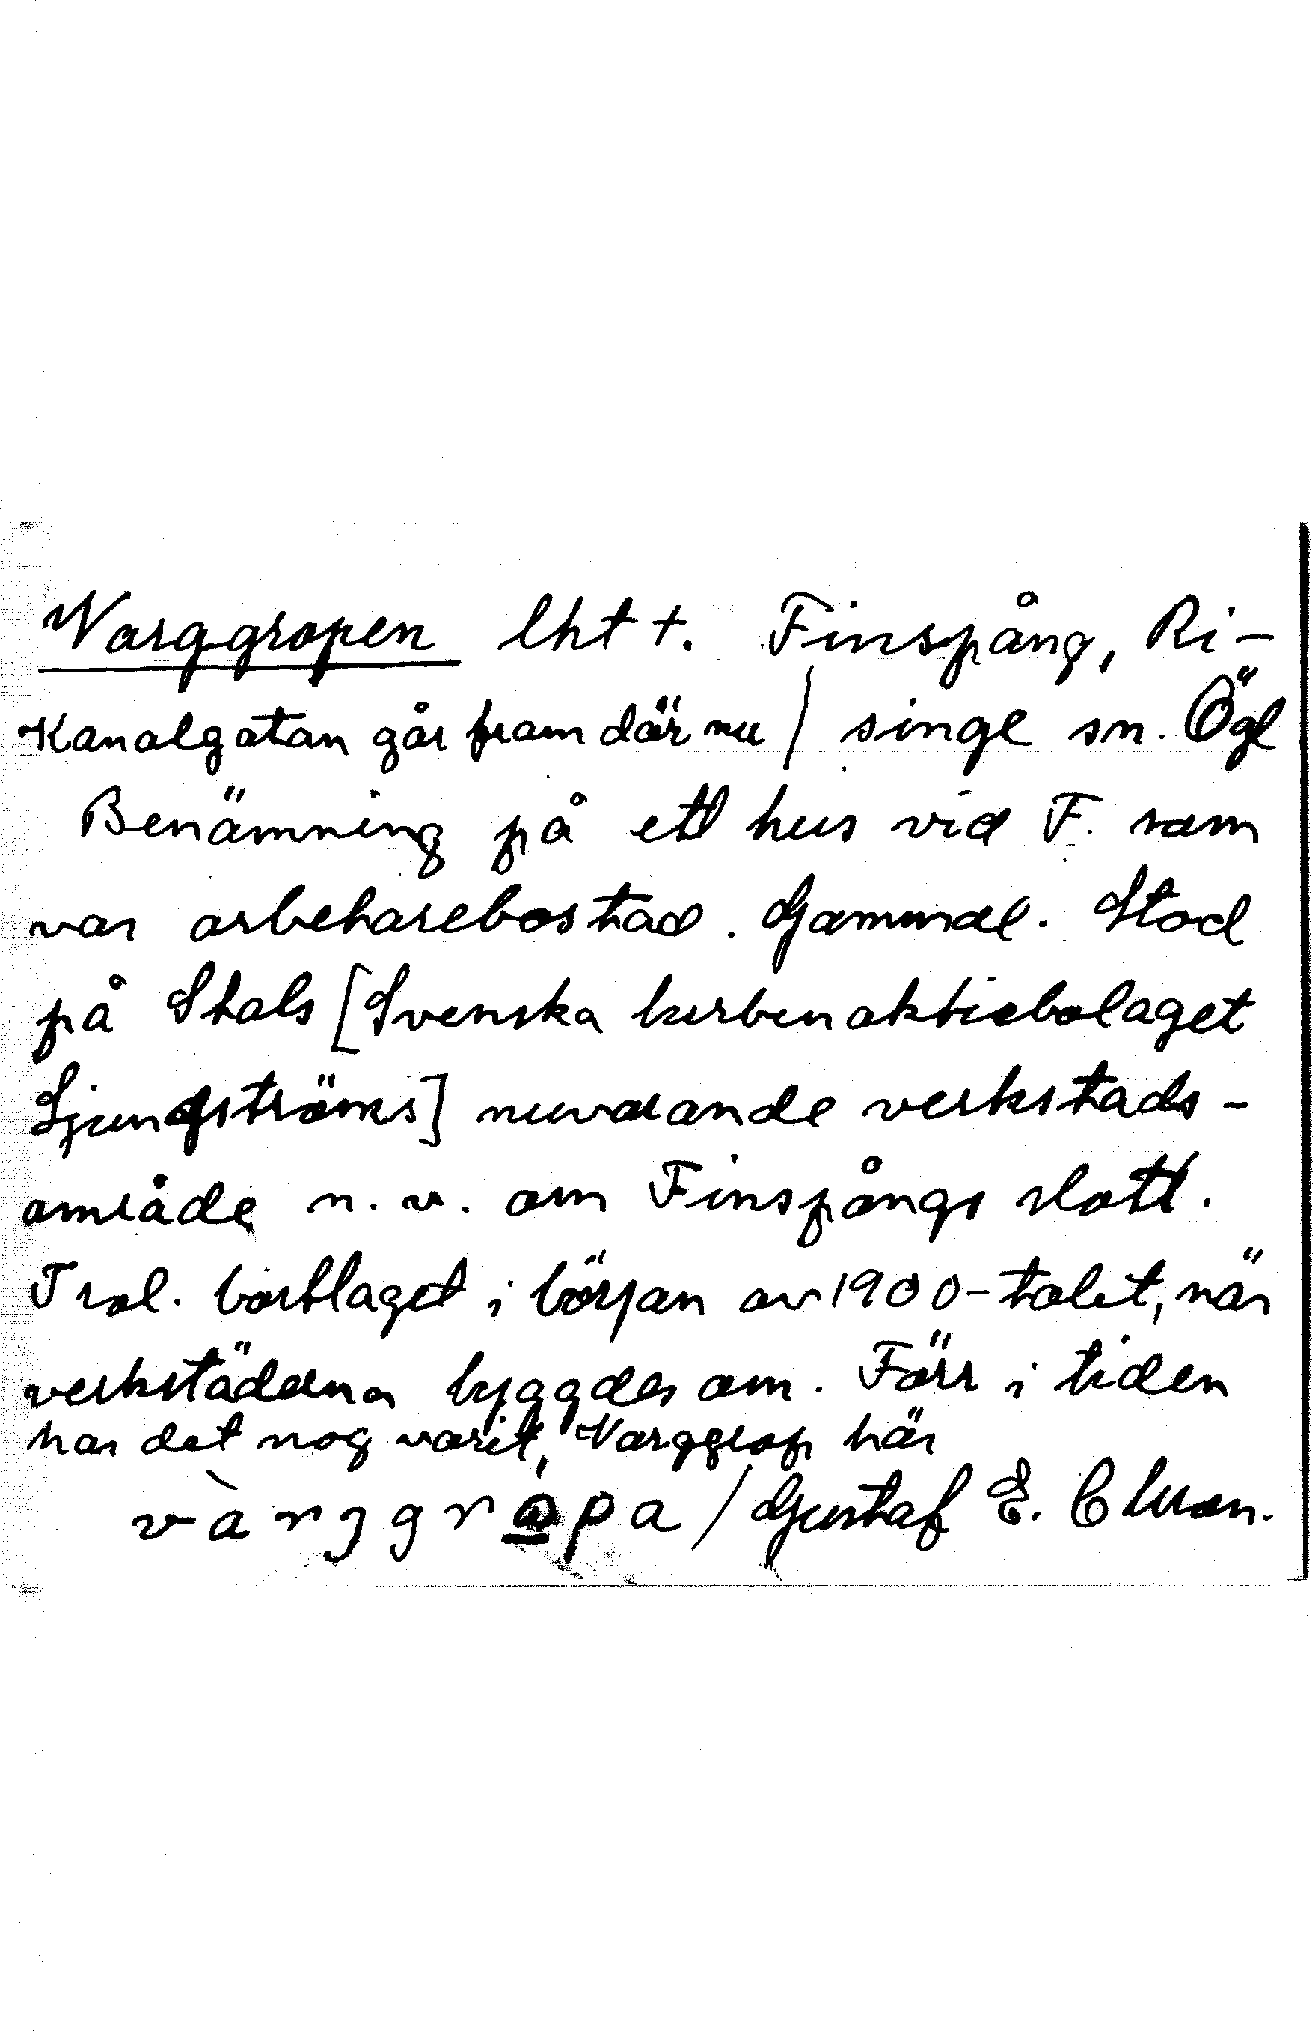 Varggropen lht +. Finspång, Ri-
Kanalgatan går fram där nu / singe sn. Ögl
Benämning på ett hus vid F. som
var arbetarebostad. Gammal. Stod
på Stals [Svenska turbinaktiebolaget
Ljungströms] nuvarande verkstads-
område n. v. om Finspångs slott.
Trol. borttaget i början av 1900-talet, när
verkstäderna byggdes om. Förr i tiden
har det nog varit Varggrop här
vàrggrópa / Gustaf E.